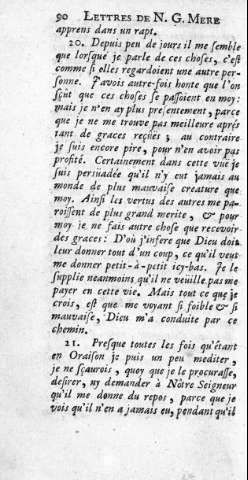 90 LETTRES DE N. G. MERE
apprens dans un rapt.
20. Depuis peu de jours il me semble
que lorsque je parle de ces choses, c'est
comme si elles regardoient une autre per-
sonne. J'avois autre-fois honte que l'on
sçût que ces choses se passoient en moy:
mais je n'en ay plus presentement, parce
que je ne me trouve pas meilleure aprés
tant de graces reçûës; au contraire
je suis encore pire, pour n'en avoir pas
profité. Certainement dans cette vûë je
suis persuadée qu'il n'y eut jamais au
monde de plus mauvaise creature que
moy. Ainsi les vertus des autres me pa-
roissent de plus grand merite, & pour
moy je ne fais autre chose que recevoir
des graces: D'où j'infere que Dieu doit
leur donner tout d'un coup, ce qu'il veut
me donner petit-à-petit icy-bas. Je le
supplie neanmoins qu'il ne veüille pas me
payer en cette vie. Mais tout ce que je
crois, est que me voyant si foible & si
mauvaise, Dieu m'a conduite par ce
chemin.
21. Presque toutes les fois qu'étant
en Oraison je puis un peu mediter,
je ne sçaurois, quoy que je le procurasse,
desirer, ny demander à Nôtre Seigneur
qu'il me donne du repos, parce que je
vois qu'il n'en a jamais eu, pendant qu'il